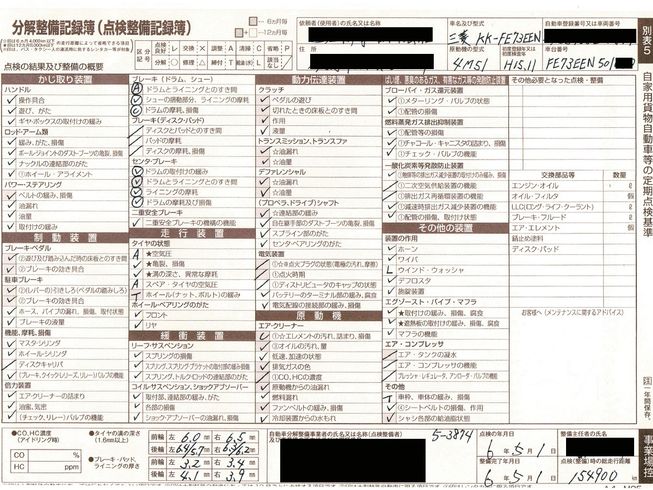 分解整備記録簿(点検整備記録簿)
□…6か月毎
□…12か月毎
依頼者(使用者)の氏名又は名称
車名及び型式
三菱 KK-FE73EEN
自動車登録番号又は車両番号
住所
原動機の型式
4M51
H15.11
車台番号
FE73EEN 501
別表5
点検の結果及び整備の概要
点検良好 レ 交換 × 調整 A 清掃 C 省略 P
分解 ○ 修理 △ 締付 T 給油 L 該当なし /
自家用貨物自動車等の定期点検基準
かじ取り装置
ハンドル
操作具合
遊び、がた
ギヤ・ボックスの取付けの緩み
ロッド・アーム類
緩み、がた、損傷
ボール・ジョイントのダストブーツの亀裂、損傷
ナックルの連結部のがた
①ホイール・アライメント
パワー・ステアリング
ベルトの緩み、損傷
油漏れ
油量
取付けの緩み
制動装置
ブレーキ・ペダル
②遊び及び踏み込んだ時の床板とのすき間
②ブレーキの効き具合
駐車ブレーキ
②(レバーの)引きしろ(ペダル踏みしろ)
②ブレーキの効き具合
ホース、パイプの漏れ、損傷、取付状態
ブレーキの液量
機能、摩耗、損傷
マスタ・シリンダ
ホイール・シリンダ
ディスクキャリパ
(ブレーキ、クイックレリーズ、リレー)バルブの機能
倍力装置
エア・クリーナーの詰まり
油密、気密
(チェック、リレー)バルブの機能
ブレーキ(ドラム、シュー)
ドラムとライニングとのすき間
シューの摺動部分、ライニングの摩耗
ドラムの摩耗、損傷
ブレーキ(ディスク・パッド)
ディスクとパッドとのすき間
パッドの摩耗
ディスクの摩耗、損傷
センタ・ブレーキ
ドラムの取付けの緩み
ドラムとライニングとのすき間
ライニングの摩耗
ドラムの摩耗及び損傷
二重安全ブレーキ
二重安全ブレーキの機構の機能
走行装置
タイヤの状態
★空気圧
★亀裂、損傷
★溝の深さ、異常な摩耗
スペア・タイヤの空気圧
ホイール(ナット、ボルト)の緩み
ホイール・ベアリングのがた
フロント
リヤ
緩衝装置
リーフ・サスペンション
スプリングの損傷
スプリング、スプリング・ブラケットの取付部の緩み損傷
スプリング、トルクロッドの連結部のがた
コイルサスペンション、ショックアブソーバー
取付部、連結部の緩み、がた
各部の損傷
ショック・アブソーバーの油漏れ、損傷
動力伝達装置
クラッチ
ペダルの遊び
切れたときの床板とのすき間
作用
液量
トランスミッション、トランスファ
☆油漏れ
☆油量
デファレンシャル
☆油漏れ
☆油量
(プロペラ、ドライブ)シャフト
☆連結部の緩み
自在継手部のダストブーツの亀裂、損傷
スプライン部のがた
センタ・ベアリングのがた
電気装置
①☆※点火プラグの状態(電極の汚れ、摩耗)
①点火時期
①ディストリビュータのキャップの状態
バッテリのターミナル部の緩み、腐食
電気配線の接続部の緩み、損傷
原動機
エア・クリーナー
①☆エレメントの汚れ、詰まり、損傷
③オイルの汚れ、量
低速、加速の状態
排気ガスの色
①CO、HCの濃度
原動機からの油漏れ
燃料漏れ
ファンベルトの緩み、損傷
冷却装置からの水もれ
ばい煙、悪臭のあるガス、有害なガス等の発散防止装置
ブローバイ・ガス還元装置
①メターリング・バルブの状態
①配管の損傷
燃料蒸発ガス排出抑制装置
①配管等の損傷
①チャコール・キャニスタの詰まり、損傷
①チェック・バルブの機能
一酸化炭素等発散防止装置
①二次空気供給装置の機能
①排気ガス再循環装置の機能
①減速時排気ガス減少装置の機能
①配管の損傷、取付状態
その他の装置
装置の作用
ホーン
ワイパ
ウインド・ウォッシャ
デフロスタ
施錠装置
エグゾースト・パイプ・マフラ
★取付けの緩み、損傷、腐食
★遮熱板の取付けの緩み、損傷、腐食
マフラの機能
エア・コンプレッサ
エア・タンクの凝水
エア・コンプレッサの機能
プレッシャ・レギュレータ、アンローダ・バルブの機能
その他
車枠、車体の緩み、損傷
④シートベルトの損傷、作用
シャシ各部の給油脂状態
その他必要となった点検・整備
交換部品等 数量
エンジン・オイル ℓ
オイル・フィルタ 個
LLC(ロング・ライフ・クーラント) ℓ
ブレーキ・フルード ℓ
エア・エレメント 個
錆止め塗料
ディスク・パッド
お客様へ(メンテナンスに関するアドバイス)
●CO、HC濃度
(アイドリング時)
CO %
HC ppm
●タイヤの溝の深さ
(1.6mm以上)
●ブレーキ・パッド、
ライニングの厚さ
前輪 左 6.0 右 6.5 ㎜
後輪 左 6.4/5.7 右 6.3/6.2 ㎜
前輪 左 3.2 右 3.4 ㎜
後輪 左 4.1 右 3.9 ㎜
自動車分解整備事業者の氏名又は名称(点検整備者)
5-3874
点検の年月日
6年5月1日
整備完了年月日
6年5月1日
整備主任者の氏名
点検(整備)時の総走行距離
154900 ㎞
一年間保存。
事業場控